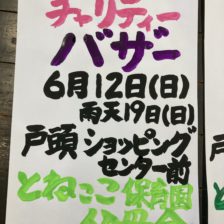 チャリティー
バザー
6月12日(日)
雨天19日(日)
戸頭ショッピング
センター前
とねっこ保育園
父母会